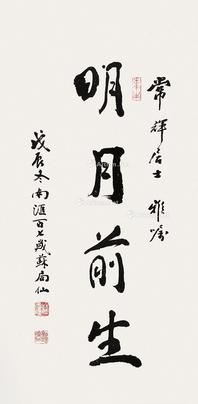 常輝居士雅嘱
明月前生
戊辰冬南滙百七歲蘇局仙